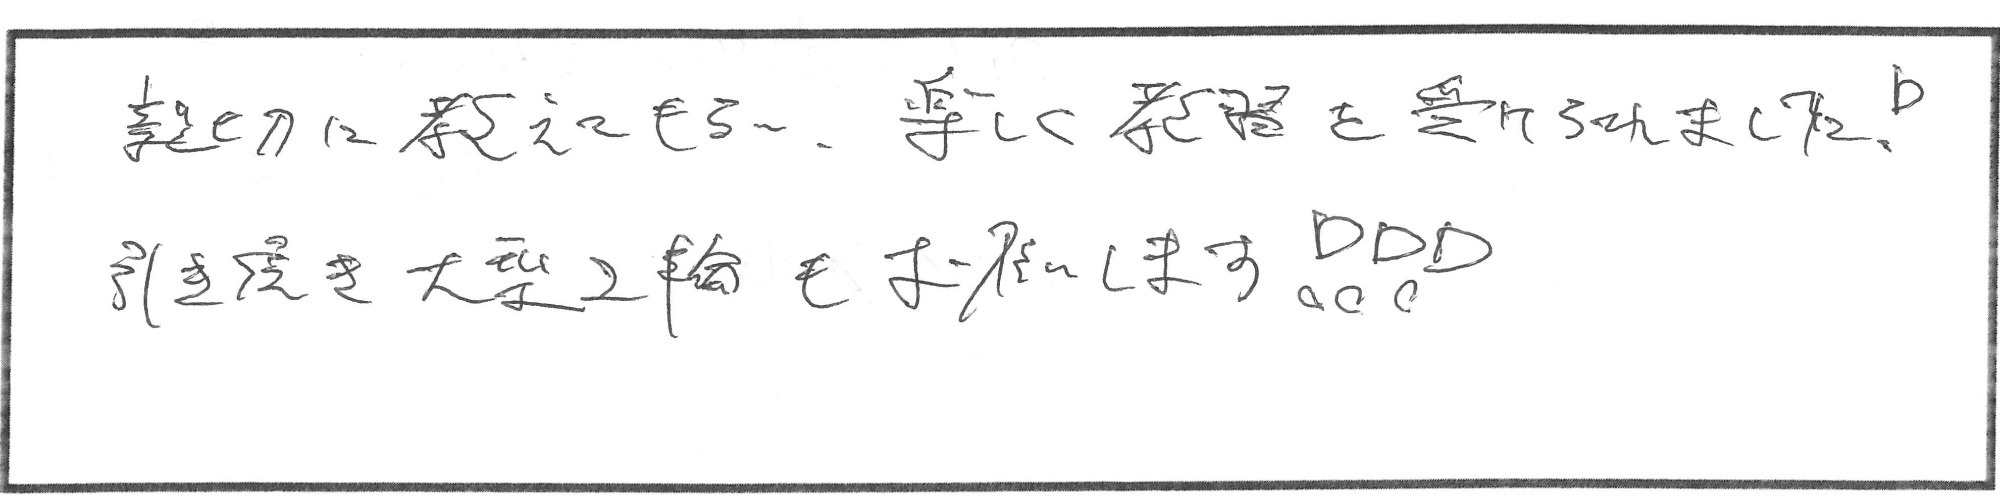 親切に教えてもらい、楽しく教習を受けられました!
引き続き大型2輪もお願いします!!!